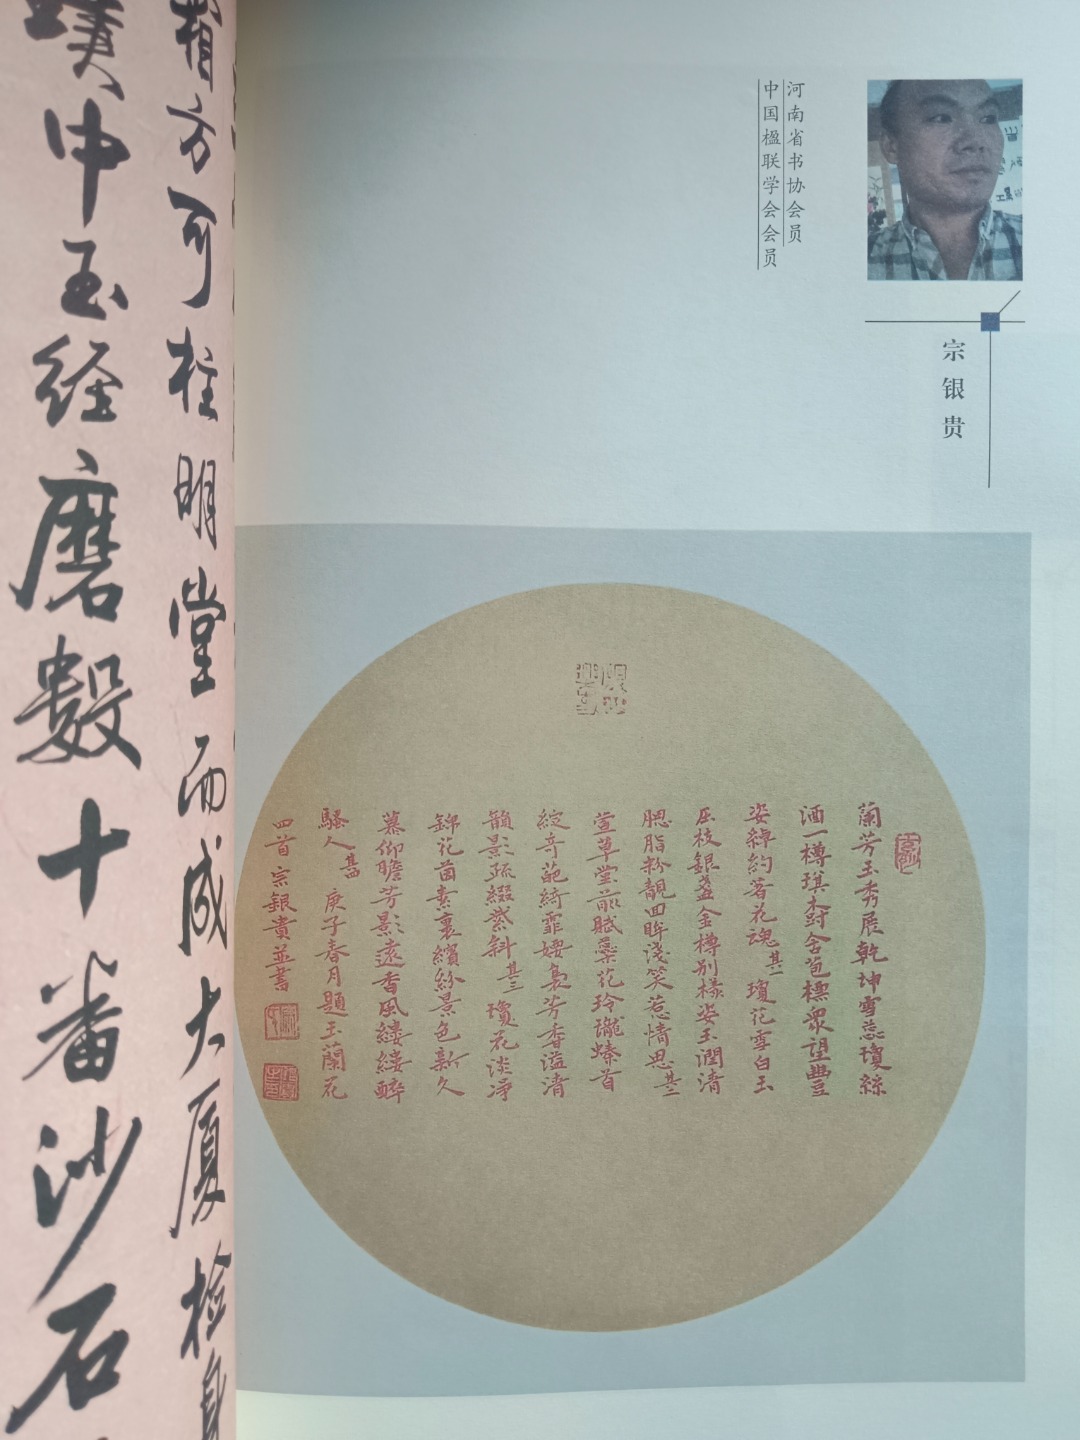 河南省书协会员
中国楹联学会会员
宗银贵
蘭芳玉秀展乾坤雪蕊瓊絲
酒一樽琪樹全苞標眾望豐
姿綽約著花魂其一瓊花雪白玉
压枝銀盞金樽別樣姿玉潤清
腮脂粉靚回眸淺笑惹情思其二
萱草堂前賦藥花玲瓏螓首
綻奇葩綺霏婹裊芳香溢清
韻影疏綴紫斜其三瓊花淡凈
錦花茵素裹繽紛景色新久
慕仰瞻芳影遠香風縷縷醉
騷人其四庚子春月題玉蘭花
四首宗銀貴並書
方可柱明堂而成大厦检身
璞中玉经磨數十番沙石